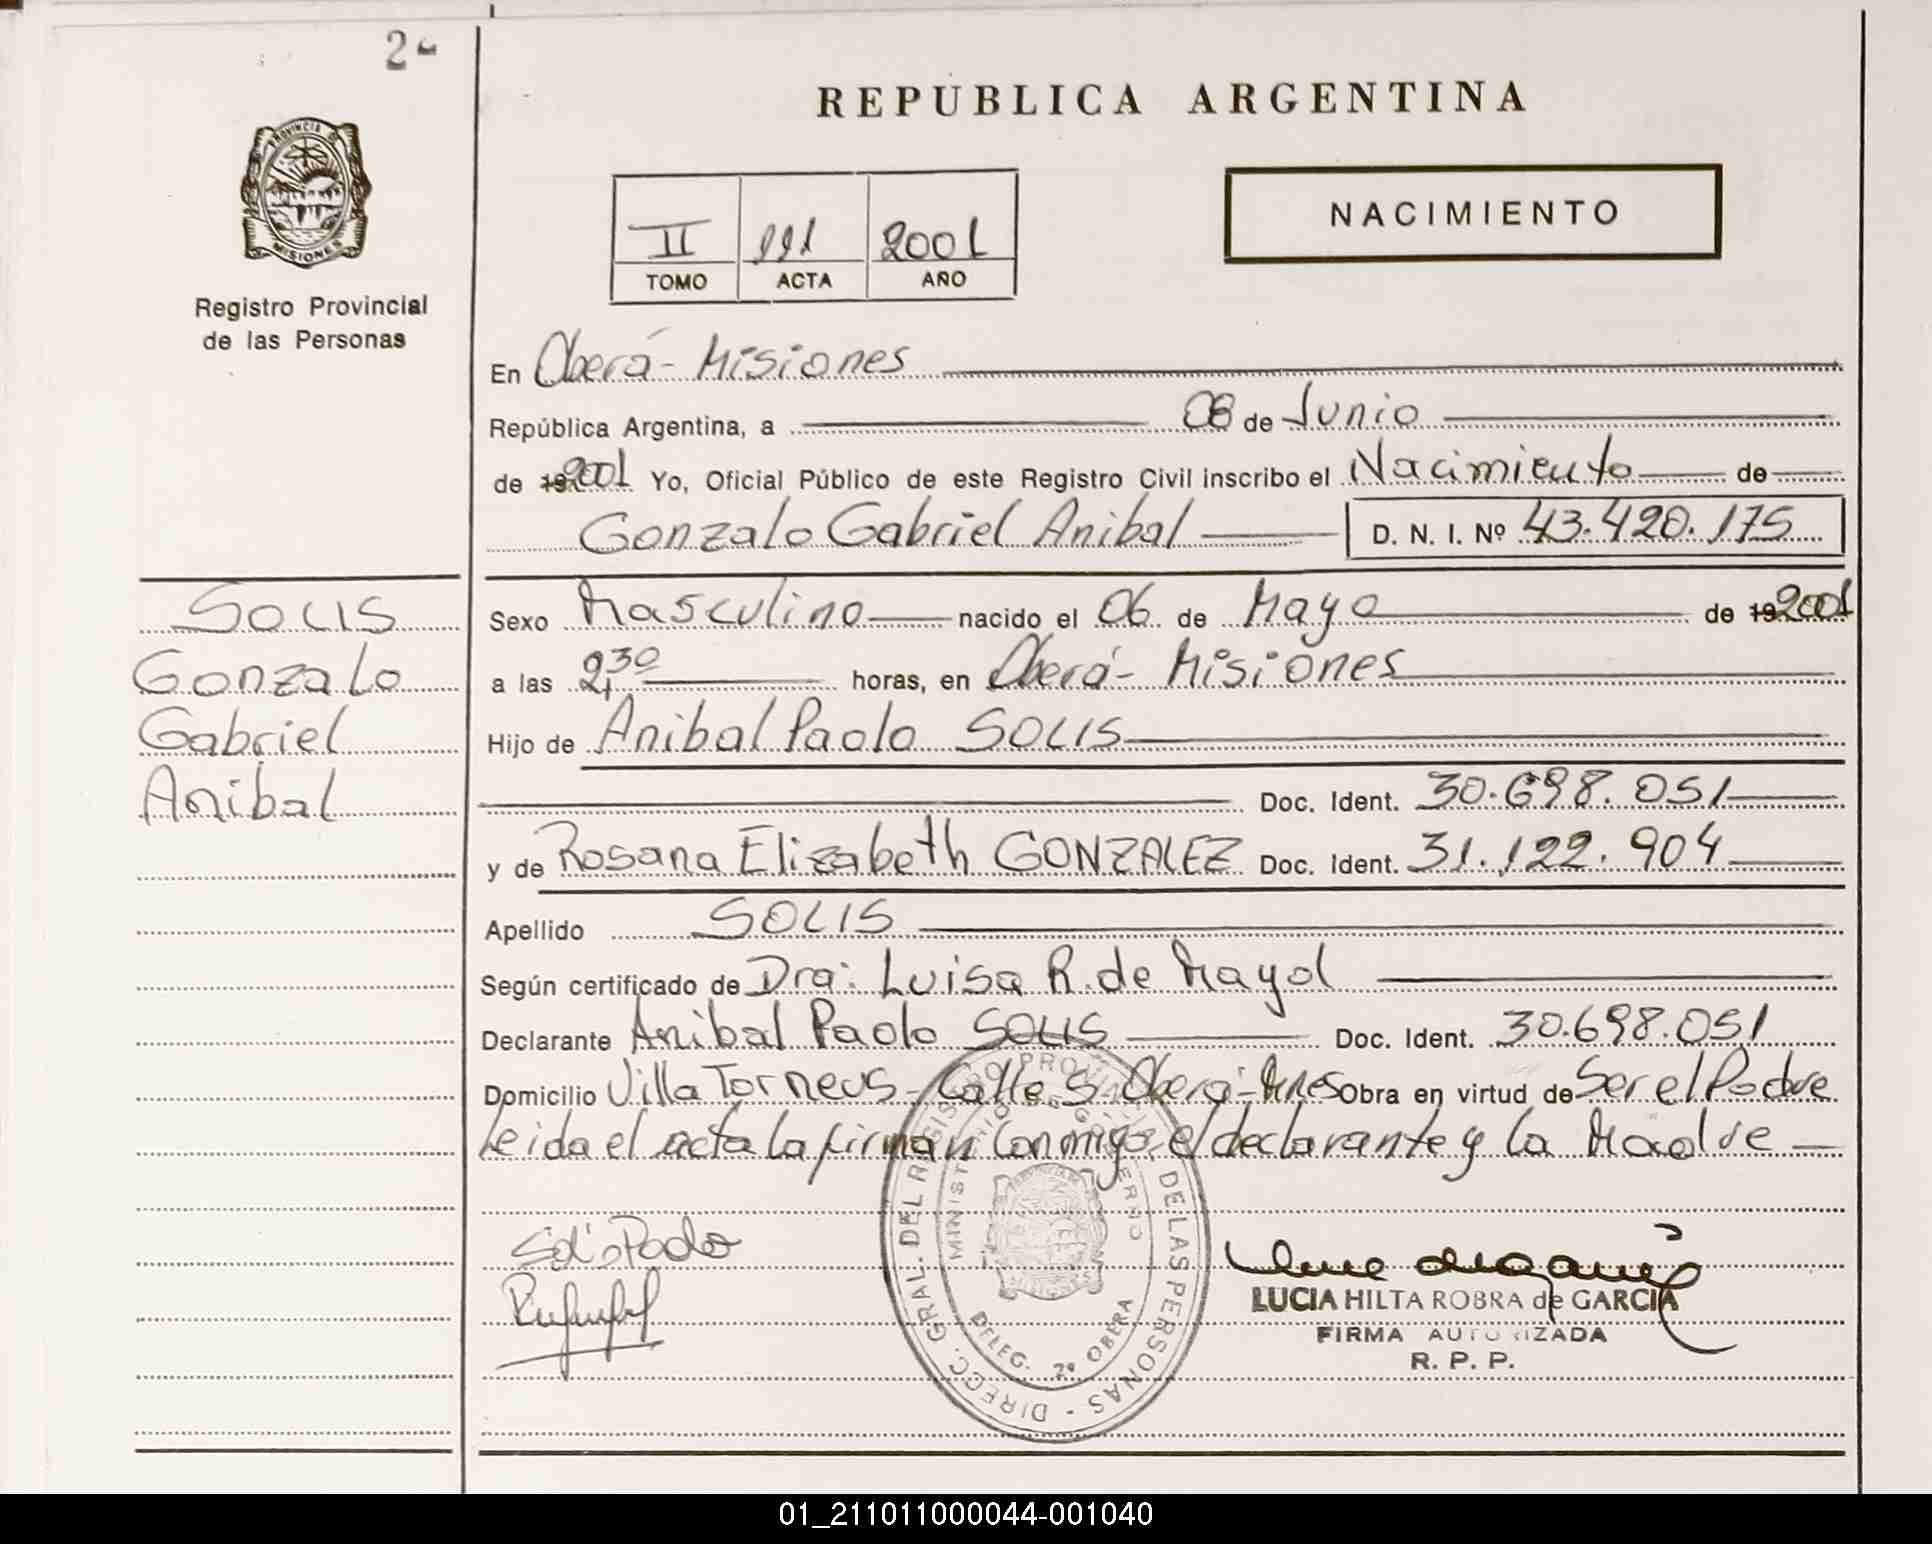 2
REPUBLICA ARGENTINA
PROVINCIA DE
MISIONES
Registro Provincial
de las Personas
NACIMIENTO
II 991 2001
TOMO ACTA AÑO
En Oberá - Misiones
República Argentina, a 08 de Junio
de 19 2001 Yo, Oficial Público de este Registro Civil inscribo el Nacimiento de
Gonzalo Gabriel Anibal D. N. I. Nº 43.420.175
SOLIS
Gonzalo
Gabriel
Anibal
Sexo Masculino nacido el 06 de Mayo de 19 2001
a las 2,30 horas, en Oberá - Misiones
Hijo de Anibal Paolo SOLIS
Doc. Ident. 30.698.051
y de Rosana Elizabeth GONZALEZ Doc. Ident. 31.122.904
Apellido SOLIS
Según certificado de Dra: Luisa R. de Mayol
Declarante Anibal Paolo SOLIS Doc. Ident. 30.698.051
Domicilio Villa Torneus - Calle 5 - Oberá - Mnes Obra en virtud de Ser el Padre
Leida el acta la firman conmigo, el declarante y la Madre
Solis Paolo
DIRECC. GRAL. DEL REGISTRO PROVINCIAL DE LAS PERSONAS -
MINISTERIO DE GOBIERNO
DELEG. 2ª OBERA
LUCIA HILTA ROBRA de GARCIA
FIRMA AUTORIZADA
R. P. P.
01_211011000044-001040